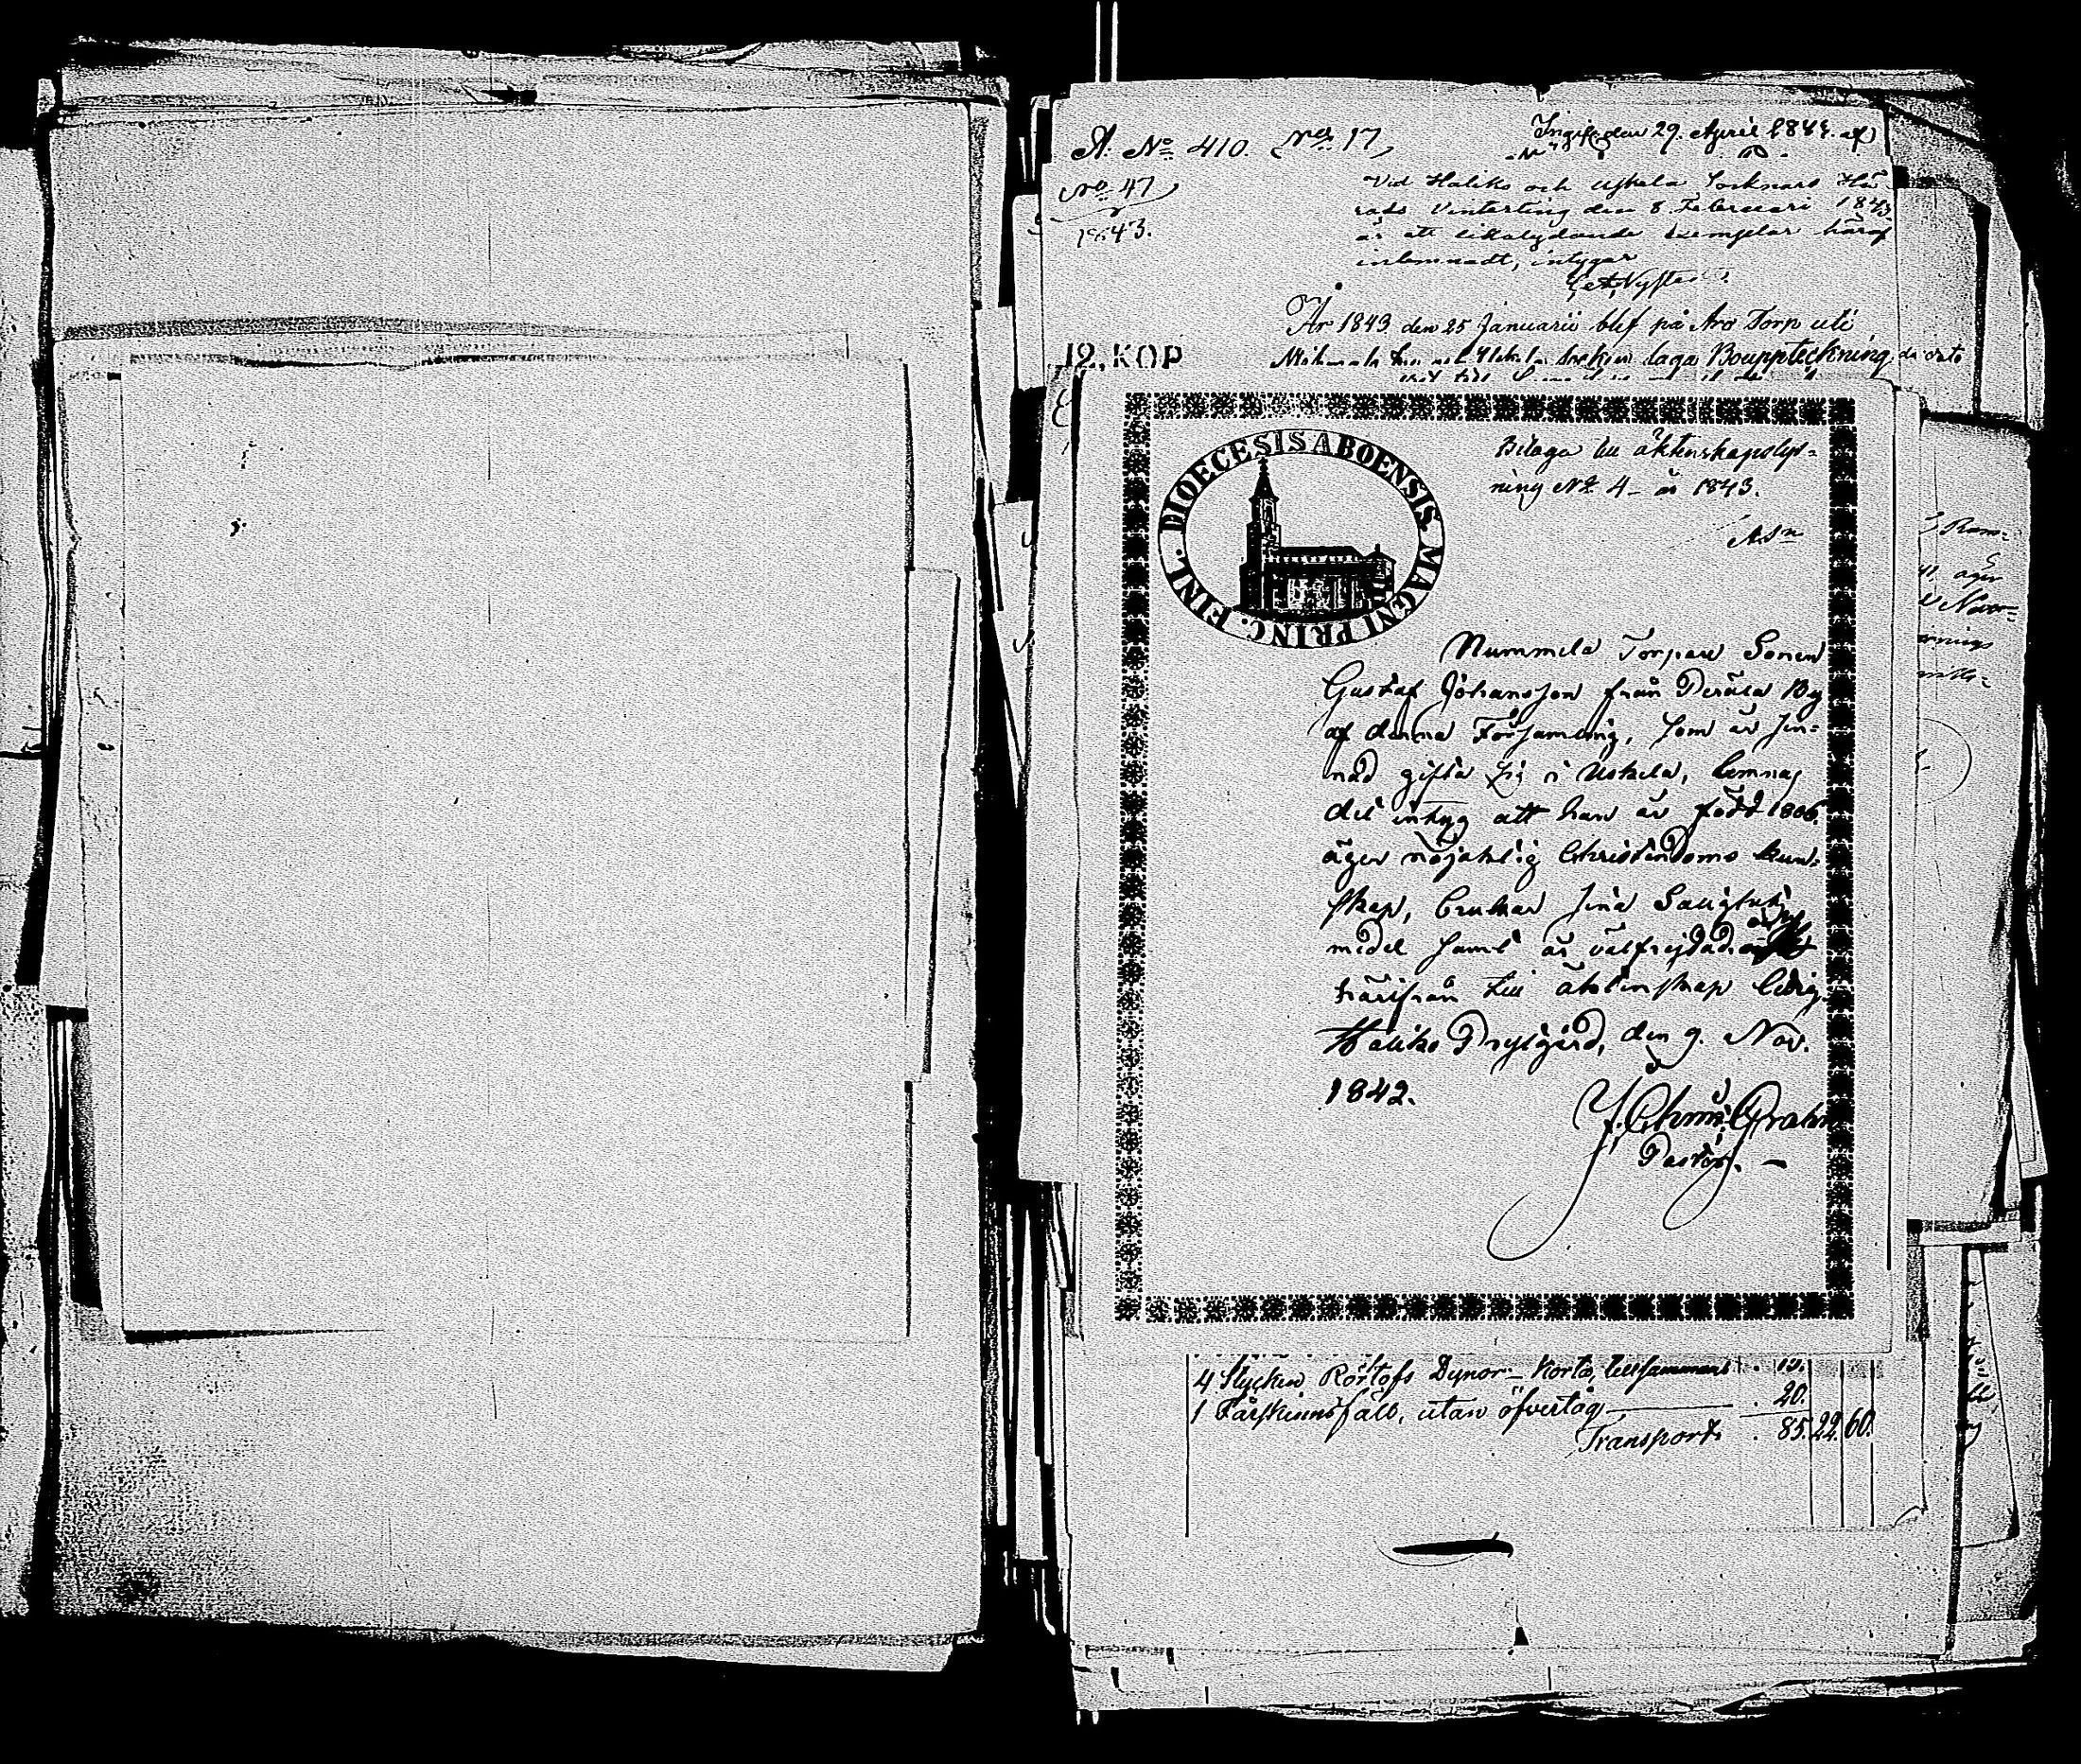 A. No 410. No 17
Ingif. den 29. April 1844. af
No 47
1843.
Vid Haliko och Uskela Socknars Hä-
rads Vinterting den 8 Februari 1843
är ett likalydande exemplar häraf
inlemnadt, intygar
År 1843 den 25 Januarii blef på Aro Torp uti
Socken laga Bouppteckning
12. KOP
DIOECESIS ABOENSIS MAGNI PRINC. FINL.
Bilaga till äktenskapslys-
ning No 4 - år 1843.
Nummela Torpare Sonen
Gustaf Johansson från Peräla By
af denna Församling, som är sin-
nad gifta sig i Uskela, lemnas
det intyg att han är född 1806,
äger nöjaktig Christendoms kun-
skap, brukar sina Salighets
medel samt är välfrejdad och
härifrån till äktenskap ledig.
Haliko Prestgård, den 9. Nov.
1842.
Grahn
Pastor.
4 Stycken Dynor - korta, tillsammans . 15.
1 Fårskinnsfäll, utan öfvertåg . 20.
Transport . 85. 22. 60.